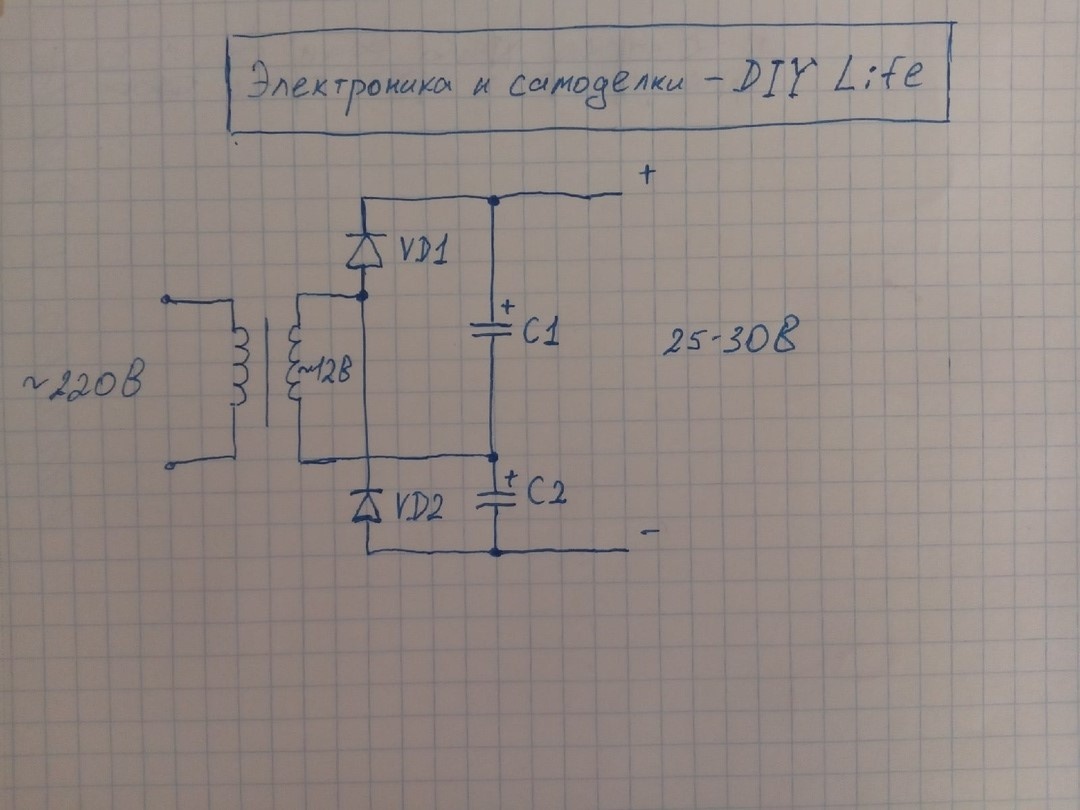 Электроника и самоделки - DIY Life
+
VD1
+
C1
25-30В
~220В
~12В
+
C2
VD2
-